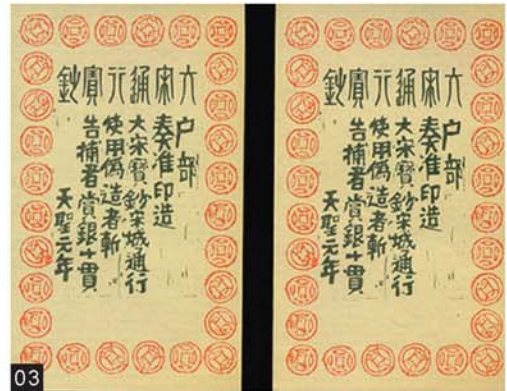 大宋通行寶鈔
户部
奏准印造
大宋寶鈔宋城通行
使用偽造者斬
告捕者賞銀十貫
天聖元年
大宋通行寶鈔
户部
奏准印造
大宋寶鈔宋城通行
使用偽造者斬
告捕者賞銀十貫
天聖元年
03